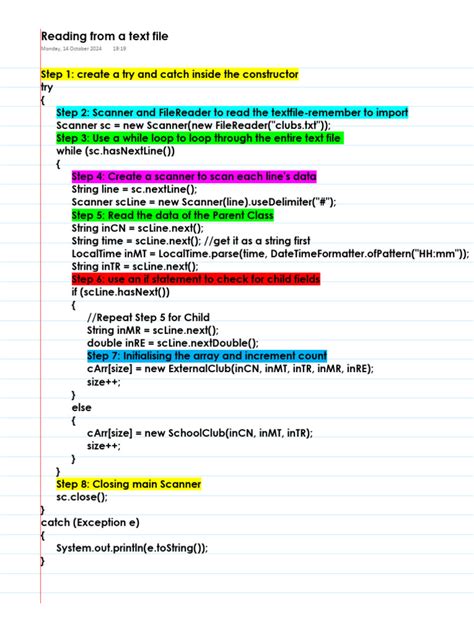 Reading from a text file
Monday, 14 October 2024 19:19
Step 1: create a try and catch inside the constructor
try
{
Step 2: Scanner and FileReader to read the textfile-remember to import
Scanner sc = new Scanner(new FileReader("clubs.txt"));
Step 3: Use a while loop to loop through the entire text file
while (sc.hasNextLine())
{
Step 4: Create a scanner to scan each line's data
String line = sc.nextLine();
Scanner scLine = new Scanner(line).useDelimiter("#");
Step 5: Read the data of the Parent Class
String inCN = scLine.next();
String time = scLine.next(); //get it as a string first
LocalTime inMT = LocalTime.parse(time, DateTimeFormatter.ofPattern("HH:mm"));
String inTR = scLine.next();
Step 6: use an if statement to check for child fields
if (scLine.hasNext())
{
//Repeat Step 5 for Child
String inMR = scLine.next();
double inRE = scLine.nextDouble();
Step 7: Initialising the array and increment count
cArr[size] = new ExternalClub(inCN, inMT, inTR, inMR, inRE);
size++;
}
else
{
cArr[size] = new SchoolClub(inCN, inMT, inTR);
size++;
}
}
Step 8: Closing main Scanner
sc.close();
}
catch (Exception e)
{
System.out.println(e.toString());
}